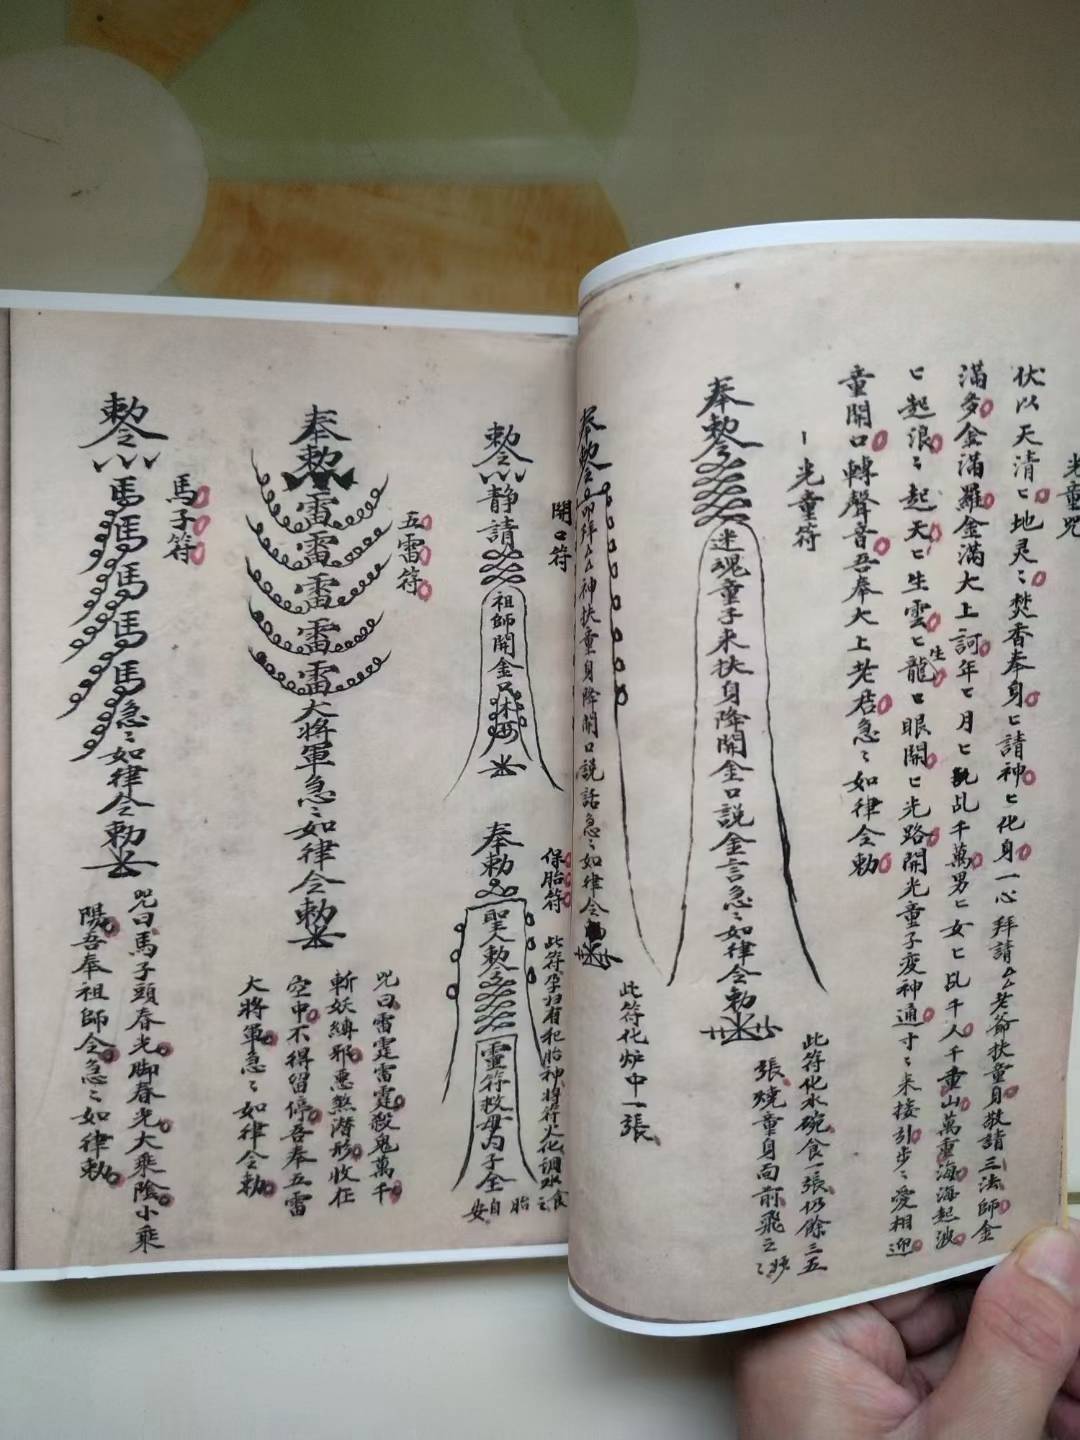 光童咒
伏以天清〻地灵〻焚香奉身〻請神〻化身一心拜請厶厶老爺扶童身敬請三法師金
滿多金滿羅金滿大上訶年〻月〻乩千萬男〻女〻乩千人千重山萬重海海起波
〻起浪〻起天〻生雲〻生龍口眼開〻光路開光童子变神通寸〻来接引步〻愛相迎
童開口轉聲音吾奉大上老君急〻如律令勅
光童符
奉勅令迷魂童子来扶身降開金口説金言急〻如律令勅
此符化水碗食一張仍餘三五
張燒童身向前飛之
此符化炉中一張
奉勅令叩拜厶厶神扶童身降開口説話急〻如律令
開口符
勅令靜請祖師開金口
保胎符
此符孕妇有犯胎神將符火化調水食之胎自安
奉勅聖人勅令靈符救母子全
五雷符
奉勅令雷雷雷雷雷大將軍急〻如律令勅
咒曰雷霆雷霆殺鬼萬千
斬妖縛邪惡煞潛形收在
空中不得留停吾奉五雷
大將軍急〻如律令勅
馬子符
勅令馬馬馬馬馬急〻如律令勅
咒曰馬子頭春光脚春光大乘陰小乘
陽吾奉祖師令急〻如律勅